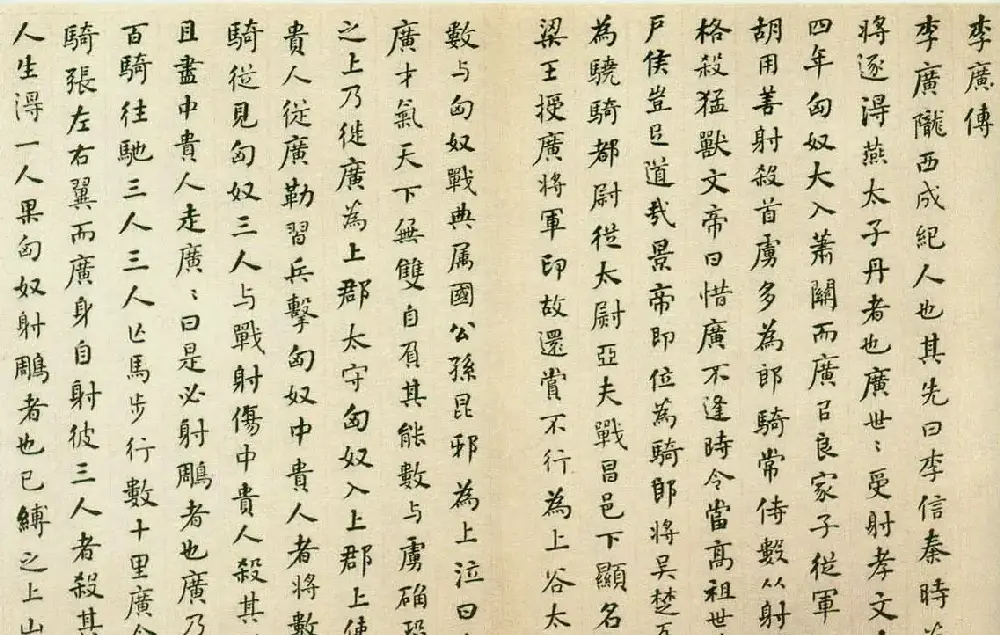 李廣傳
李廣隴西成紀人也其先曰李信秦時
將逐得燕太子丹者也廣世〻受射孝文
四年匈奴大入蕭關而廣㠯良家子從軍
胡用善射殺首虜多為郎騎常侍數從射
格殺猛獸文帝曰惜廣不逢時令當高祖世
戶侯豈足道哉景帝即位為騎郎將吳楚
為驍騎都尉從太尉亞夫戰昌邑下顯名
梁王授廣將軍印故還賞不行為上谷太
數与匈奴戰典属國公孫昆邪為上泣曰
廣才氣天下無雙自負其能數与虜确
之上乃徙廣為上郡太守匈奴入上郡上使
貴人從廣勒習兵擊匈奴中貴人者將數
騎從見匈奴三人与戰射傷中貴人殺其
且盡中貴人走廣〻曰是必射鵰者也廣乃
百騎往馳三人三人亡馬步行數十里廣令
騎張左右翼而廣身自射彼三人者殺其
人生得一人果匈奴射鵰者也已縛之上山